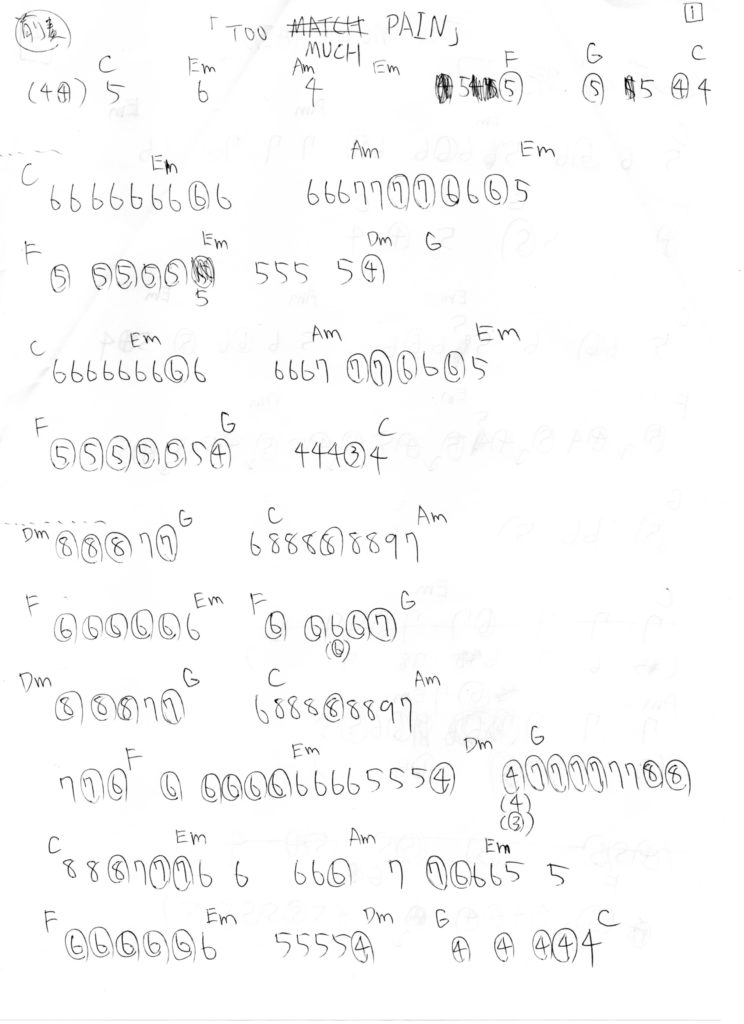 前奏 「TOO MUCH PAIN」 1
C Em Am Em F G C
(4④) 5 6 4 5 ⑤ ⑤ 5 ④ 4
C Em Am Em
6666666⑥6 66677⑦⑦⑥6⑥5
F Em Dm G
⑤ ⑤⑤⑤⑤ 555 5④
5
C Em Am Em
6666666⑥6 6667 ⑦⑦⑥6⑥5
F G C
⑤⑤⑤⑤⑤5④ 444③4
Dm G C Am
⑧⑧⑧7⑦ 6888⑧8897
F Em F G
⑥⑥⑥⑥⑥6 ⑥ ⑥6⑥⑦
(⑥)
Dm G C Am
⑧⑧⑧7⑦ 6888⑧8897
F Em Dm G
7⑦⑥ ⑥ ⑥⑥⑥⑥6666555④ ④⑦⑦⑦⑦77⑧⑧
(4)
(③)
C Em Am Em
88⑧7⑦⑦6 6 66⑥ 7 ⑦⑥665 5
F Em Dm G C
⑥⑥⑥⑥⑥6 5555④ ④ ④ ④④4